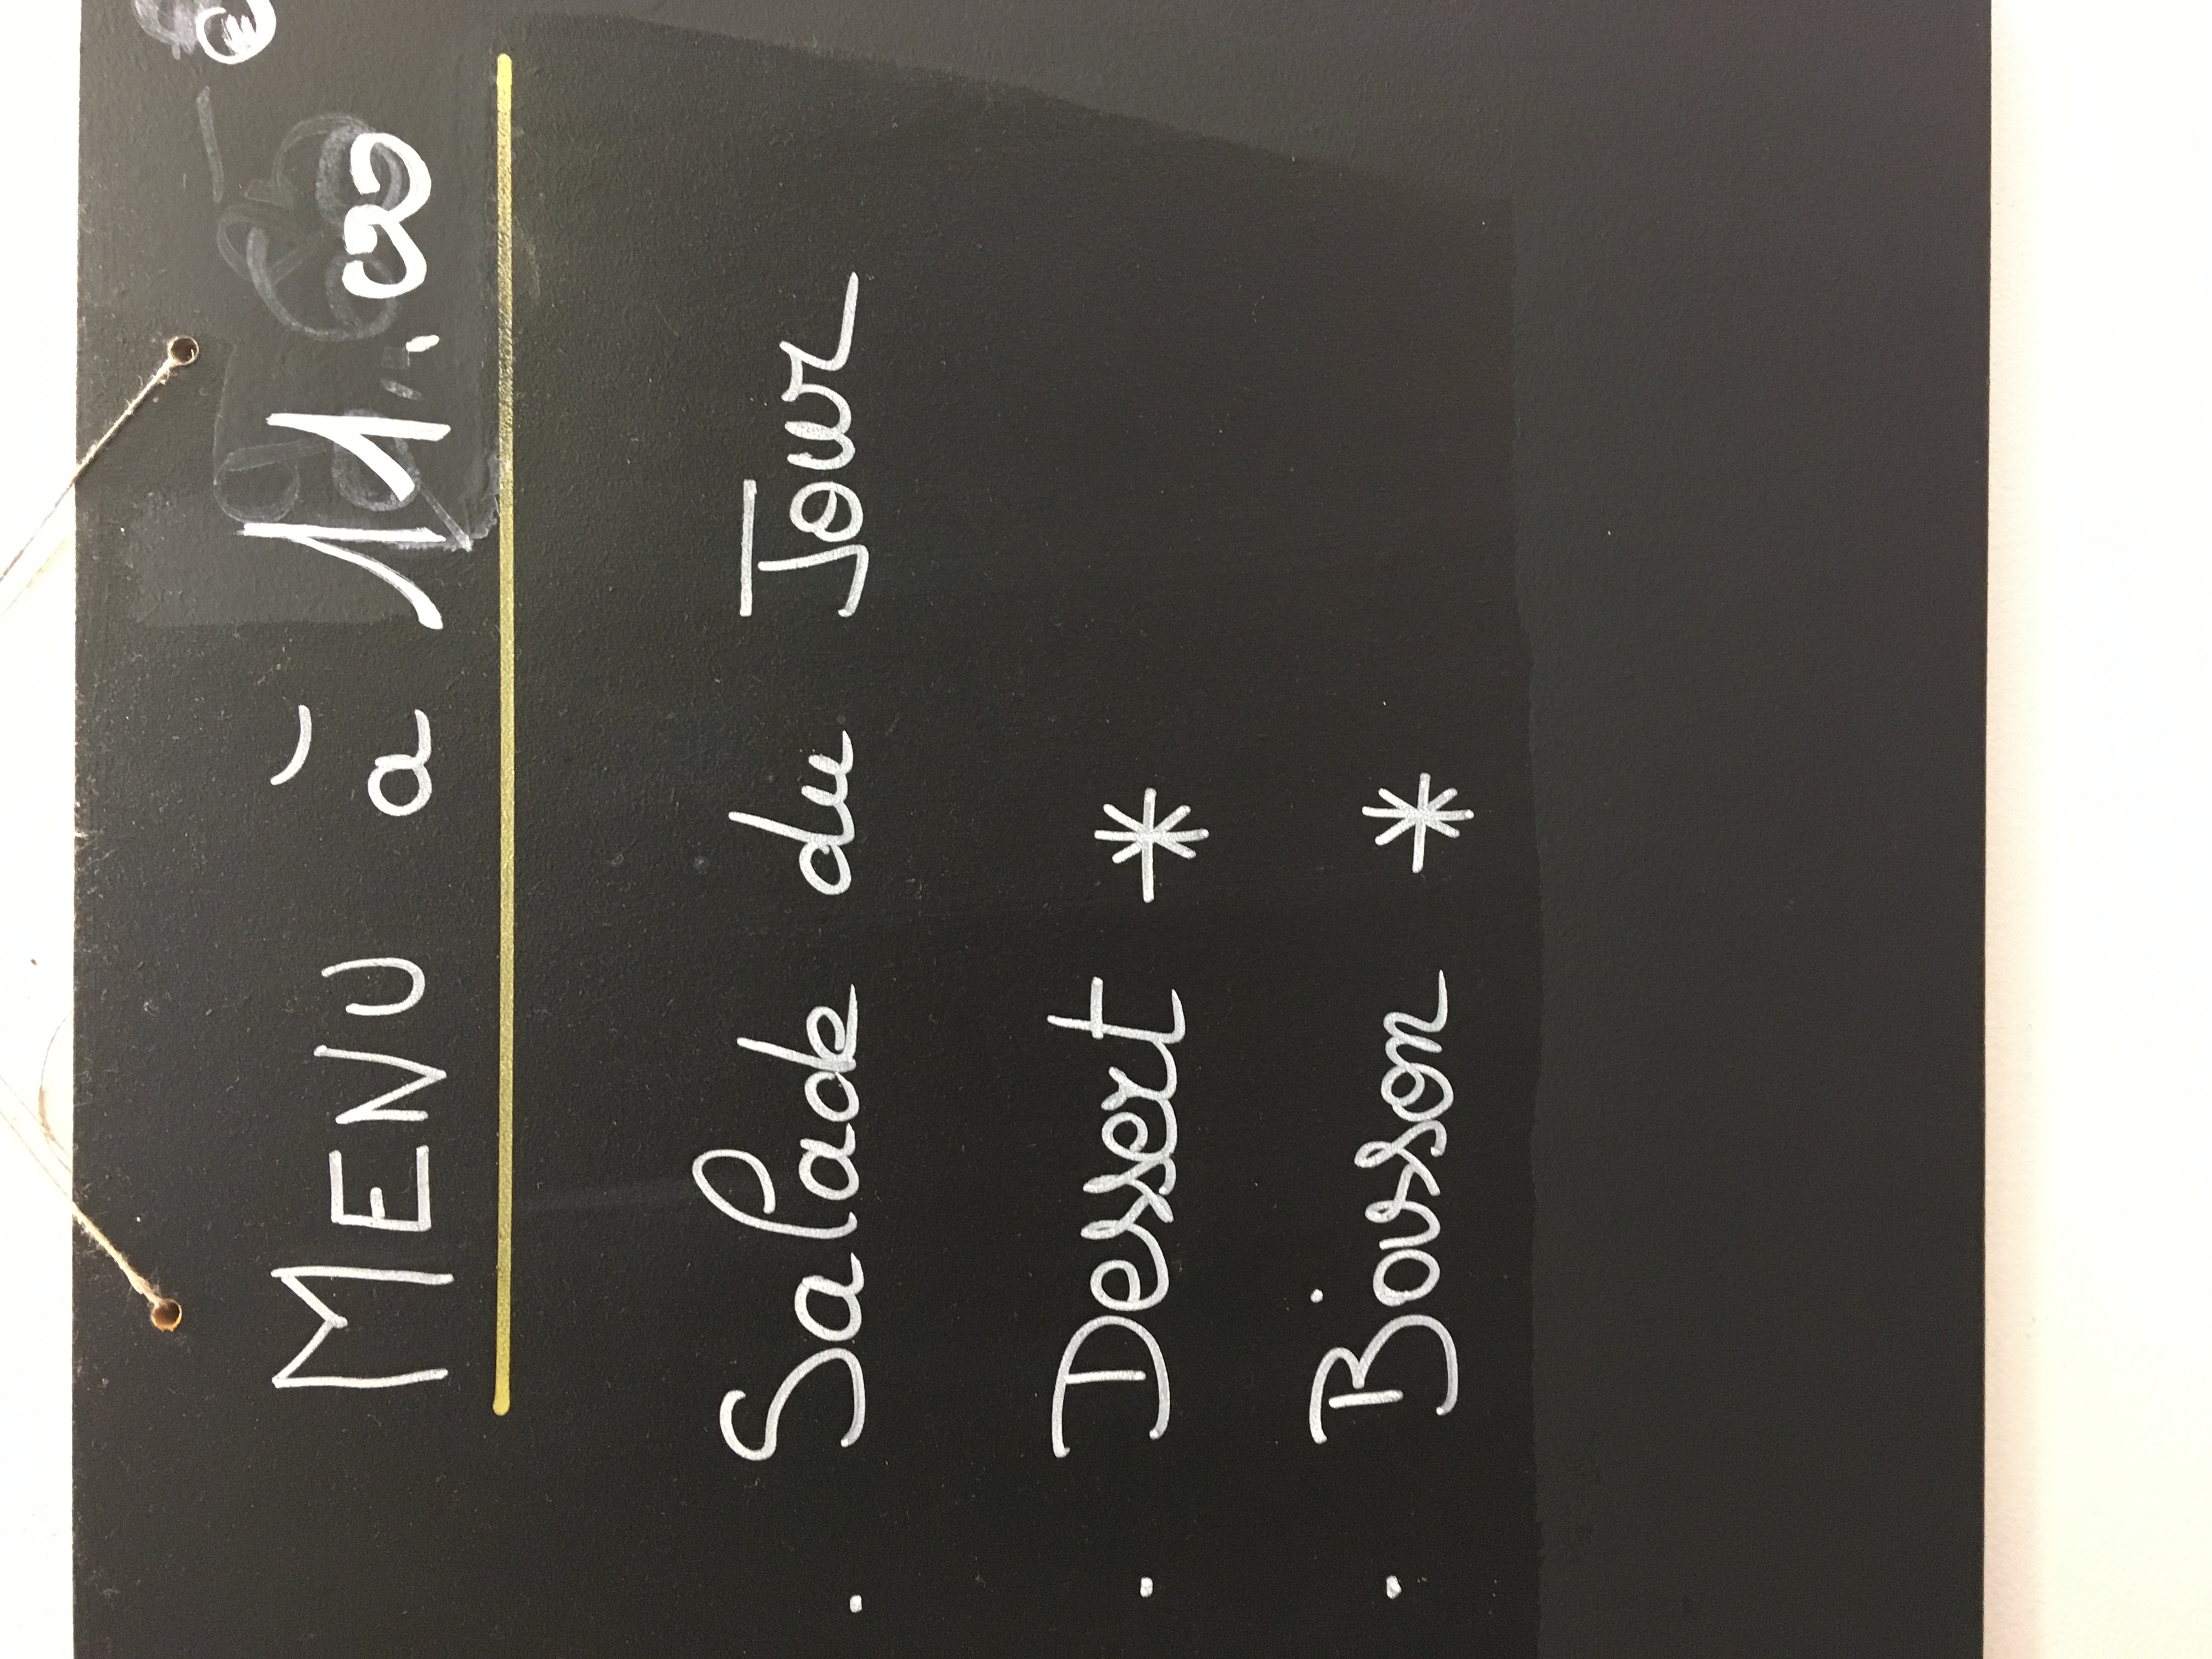 MENU à 11.
. Salade du Jour
. Dessert *
. Boisson *